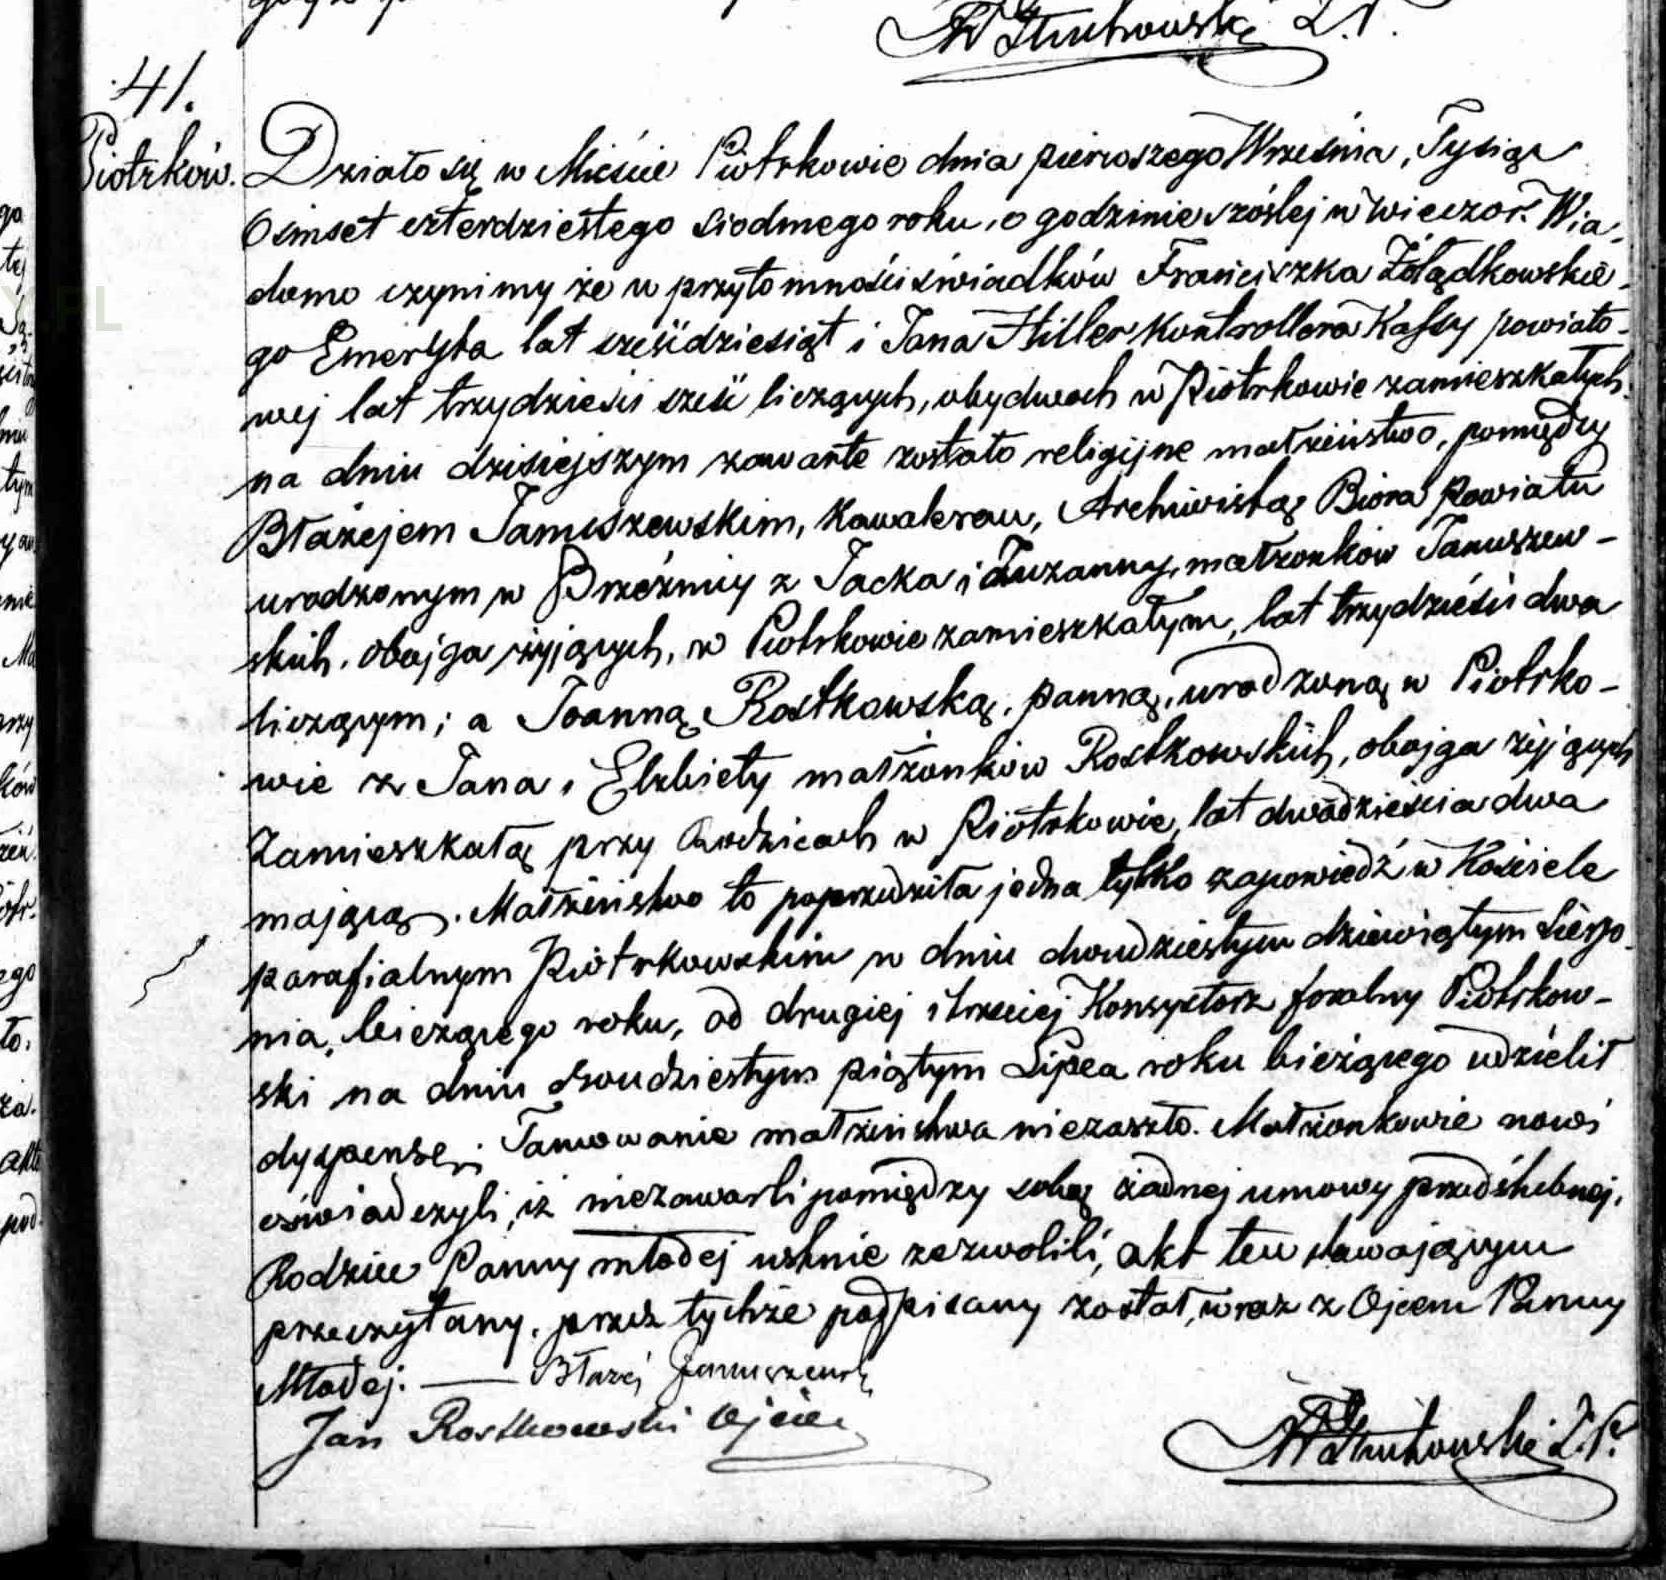 41.
Piotrków.
Działo się w Mieście Piotrkowie dnia pierwszego Września, Tysiąc
Ośmset czterdziestego siodmego roku, o godzinie szóstej w wieczor. Wia-
domo czynimy że w przytomności świadków Franciszka Żołądkowskie-
go Emeryta lat sześćdziesiąt i Jana Hiller Kontrollera Kassy powiato-
wej lat trzydzieści sześć liczących, obydwoch w Piotrkowie zamieszkałych
na dniu dzisiejszym zawarte zostało religijne małżeństwo, pomiędzy
Błażejem Januszewskim, Kawalerem, Archiwistą Biora Powiatu
urodzonym w Brzeźnicy z Jacka i Zuzanny, małżonków Januszew-
skich, obojga żyjących, w Piotrkowie zamieszkałym, lat trzydzieści dwa
liczącym; a Joanną Rostkowską, panną, urodzoną w Piotrko-
wie z Jana i Elżbiety małżonków Rostkowskich, obojga żyjących
Zamieszkałą przy Rodzicach w Piotrkowie, lat dwadzieścia dwa
mającą. Małżeństwo to poprzedziła jedna tylko zapowiedź w Kościele
parafialnym Piotrkowskim w dniu dwudziestym dziewiątym Sierp-
nia, bieżącego roku, od drugiej i trzeciej Konsystorz foralny Piotrkow-
ski na dniu dwudziestym piątym Lipca roku bieżącego udzielił
dyspensę. Tamowanie małżeństwa niezaszło. Małżonkowie nowi
oświadczyli, iż niezawarli pomiędzy sobą żadnej umowy przedślubnej.
Rodzice Panny młodej ustnie zezwolili, akt ten stawającym
przeczytany, przez tychże podpisany został, wraz z Ojcem Panny
Młodej. Błażej Januszewski
Jan Rostkowski Ojciec